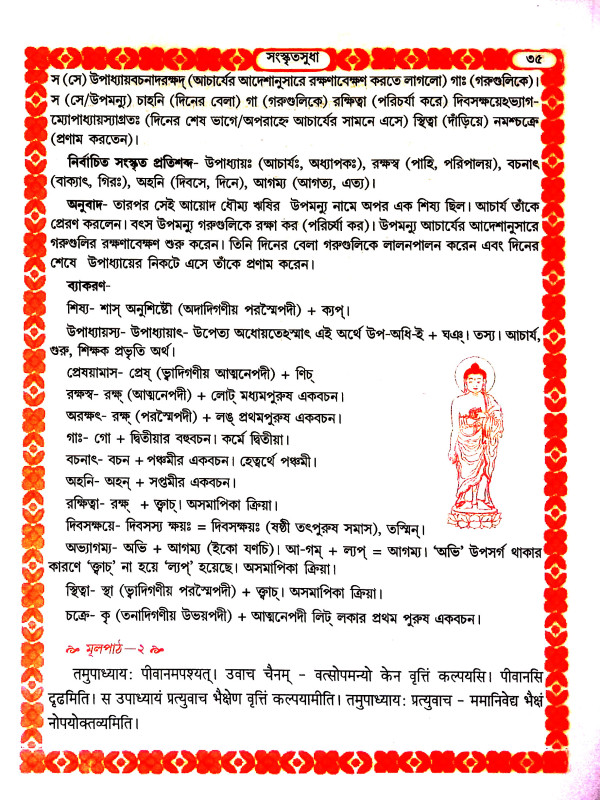 সংস্কৃতসুধা
৩৫
স (সে) উপাধ্যায়বচনাদরক্ষদ্ (আচার্যের আদেশানুসারে রক্ষণাবেক্ষণ করতে লাগলো) গাঃ (গরুগুলিকে)।
স (সে/উপমন্যু) চাহনি (দিনের বেলা) গা (গরুগুলিকে) রক্ষিত্বা (পরিচর্যা করে) দিবসক্ষয়েঽভ্যাগ-
ম্যোপাধ্যায়স্যাগ্রতঃ (দিনের শেষ ভাগে/অপরাহ্নে আচার্যের সামনে এসে) স্থিত্বা (দাঁড়িয়ে) নমশ্চক্রে
(প্রণাম করতেন)।
নির্বাচিত সংস্কৃত প্রতিশব্দ- উপাধ্যায়ঃ (আচার্যঃ, অধ্যাপকঃ), রক্ষস্ব (পাহি, পরিপালয়), বচনাৎ
(বাক্যাৎ, গিরঃ), অহনি (দিবসে, দিনে), আগম্য (আগত্য, এত্য)।
অনুবাদ- তারপর সেই আয়োদ ধৌম্য ঋষির উপমন্যু নামে অপর এক শিষ্য ছিল। আচার্য তাঁকে
প্রেরণ করলেন। বৎস উপমন্যু গরুগুলিকে রক্ষা কর (পরিচর্যা কর)। উপমন্যু আচার্যের আদেশানুসারে
গরুগুলির রক্ষণাবেক্ষণ শুরু করেন। তিনি দিনের বেলা গরুগুলিকে লালনপালন করেন এবং দিনের
শেষে উপাধ্যায়ের নিকটে এসে তাঁকে প্রণাম করেন।
ব্যাকরণ-
শিষ্য- শাস্ অনুশিষ্টৌ (অদাদিগণীয় পরস্মৈপদী) + ক্যপ্।
উপাধ্যায়স্য- উপাধ্যায়াৎ- উপেত্য অধোয়তেঽস্মাৎ এই অর্থে উপ-অধি-ই + ঘঞ্। তস্য। আচার্য,
গুরু, শিক্ষক প্রভৃতি অর্থ।
প্রেষয়ামাস- প্রেষ্ (ভ্বাদিগণীয় আত্মনেপদী) + ণিচ্
রক্ষস্ব- রক্ষ্ (আত্মনেপদী) + লোট্ মধ্যমপুরুষ একবচন।
অরক্ষৎ- রক্ষ্ (পরস্মৈপদী) + লঙ্ প্রথমপুরুষ একবচন।
গাঃ- গো + দ্বিতীয়ার বহুবচন। কর্মে দ্বিতীয়া।
বচনাৎ- বচন + পঞ্চমীর একবচন। হেত্বর্থে পঞ্চমী।
অহনি- অহন্ + সপ্তমীর একবচন।
রক্ষিত্বা- রক্ষ্ + ক্ত্বাচ্। অসমাপিকা ক্রিয়া।
দিবসক্ষয়ে- দিবসস্য ক্ষয়ঃ = দিবসক্ষয়ঃ (ষষ্ঠী তৎপুরুষ সমাস), তস্মিন্।
অভ্যাগম্য- অভি + আগম্য (ইকো যণচি)। আ-গম্ + ল্যপ্ = আগম্য। ‘অভি’ উপসর্গ থাকার
কারণে ‘ক্ত্বাচ্’ না হয়ে ‘ল্যপ্’ হয়েছে। অসমাপিকা ক্রিয়া।
স্থিত্বা- স্থা (ভ্বাদিগণীয় পরস্মৈপদী) + ক্ত্বাচ্। অসমাপিকা ক্রিয়া।
চক্রে- কৃ (তনাদিগণীয় উভয়পদী) + আত্মনেপদী লিট্ লকার প্রথম পুরুষ একবচন।
মূলপাঠ–২
तमुपाध्याय: पीवानमपश्यत्। उवाच चैनम् - वत्सोपमन्यो केन वृत्तिं कल्पयसि। पीवानसि
दृढमिति। स उपाध्यायं प्रत्युवाच भैक्षेण वृत्तिं कल्पयामीति। तमुपाध्याय: प्रत्युवाच - ममानिवेद्य भैक्षं
नोपयोक्तव्यमिति।